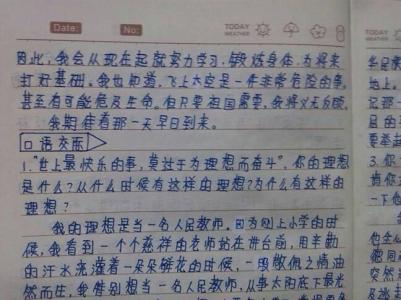 Date:
No:
TODAY
WEATHER
TODAY
WEATHER
因此,我会从现在起就努力学习,锻炼身体,为将来
打好基础。我也知道,飞上太空是一件非常危险的事,
甚至有可能危及生命。但只要祖国需要,我将义无反顾。
我期待着那一天早日到来。
口语交际
1."世上最快乐的事,莫过于为理想而奋斗"。你的理想
是什么?从什么时候有这样的理想?为什么有这样的
理想?
我的理想是当一名人民教师。因为刚上小学的时
候,我看到一个个慈祥的老师站在讲台前,用辛勤
的汗水浇灌着一朵朵鲜花的时候,一股敬佩之情油
然而生,我特别想当一名人民教师,从事太阳底下最光
地上。
记那一
且的
3.你